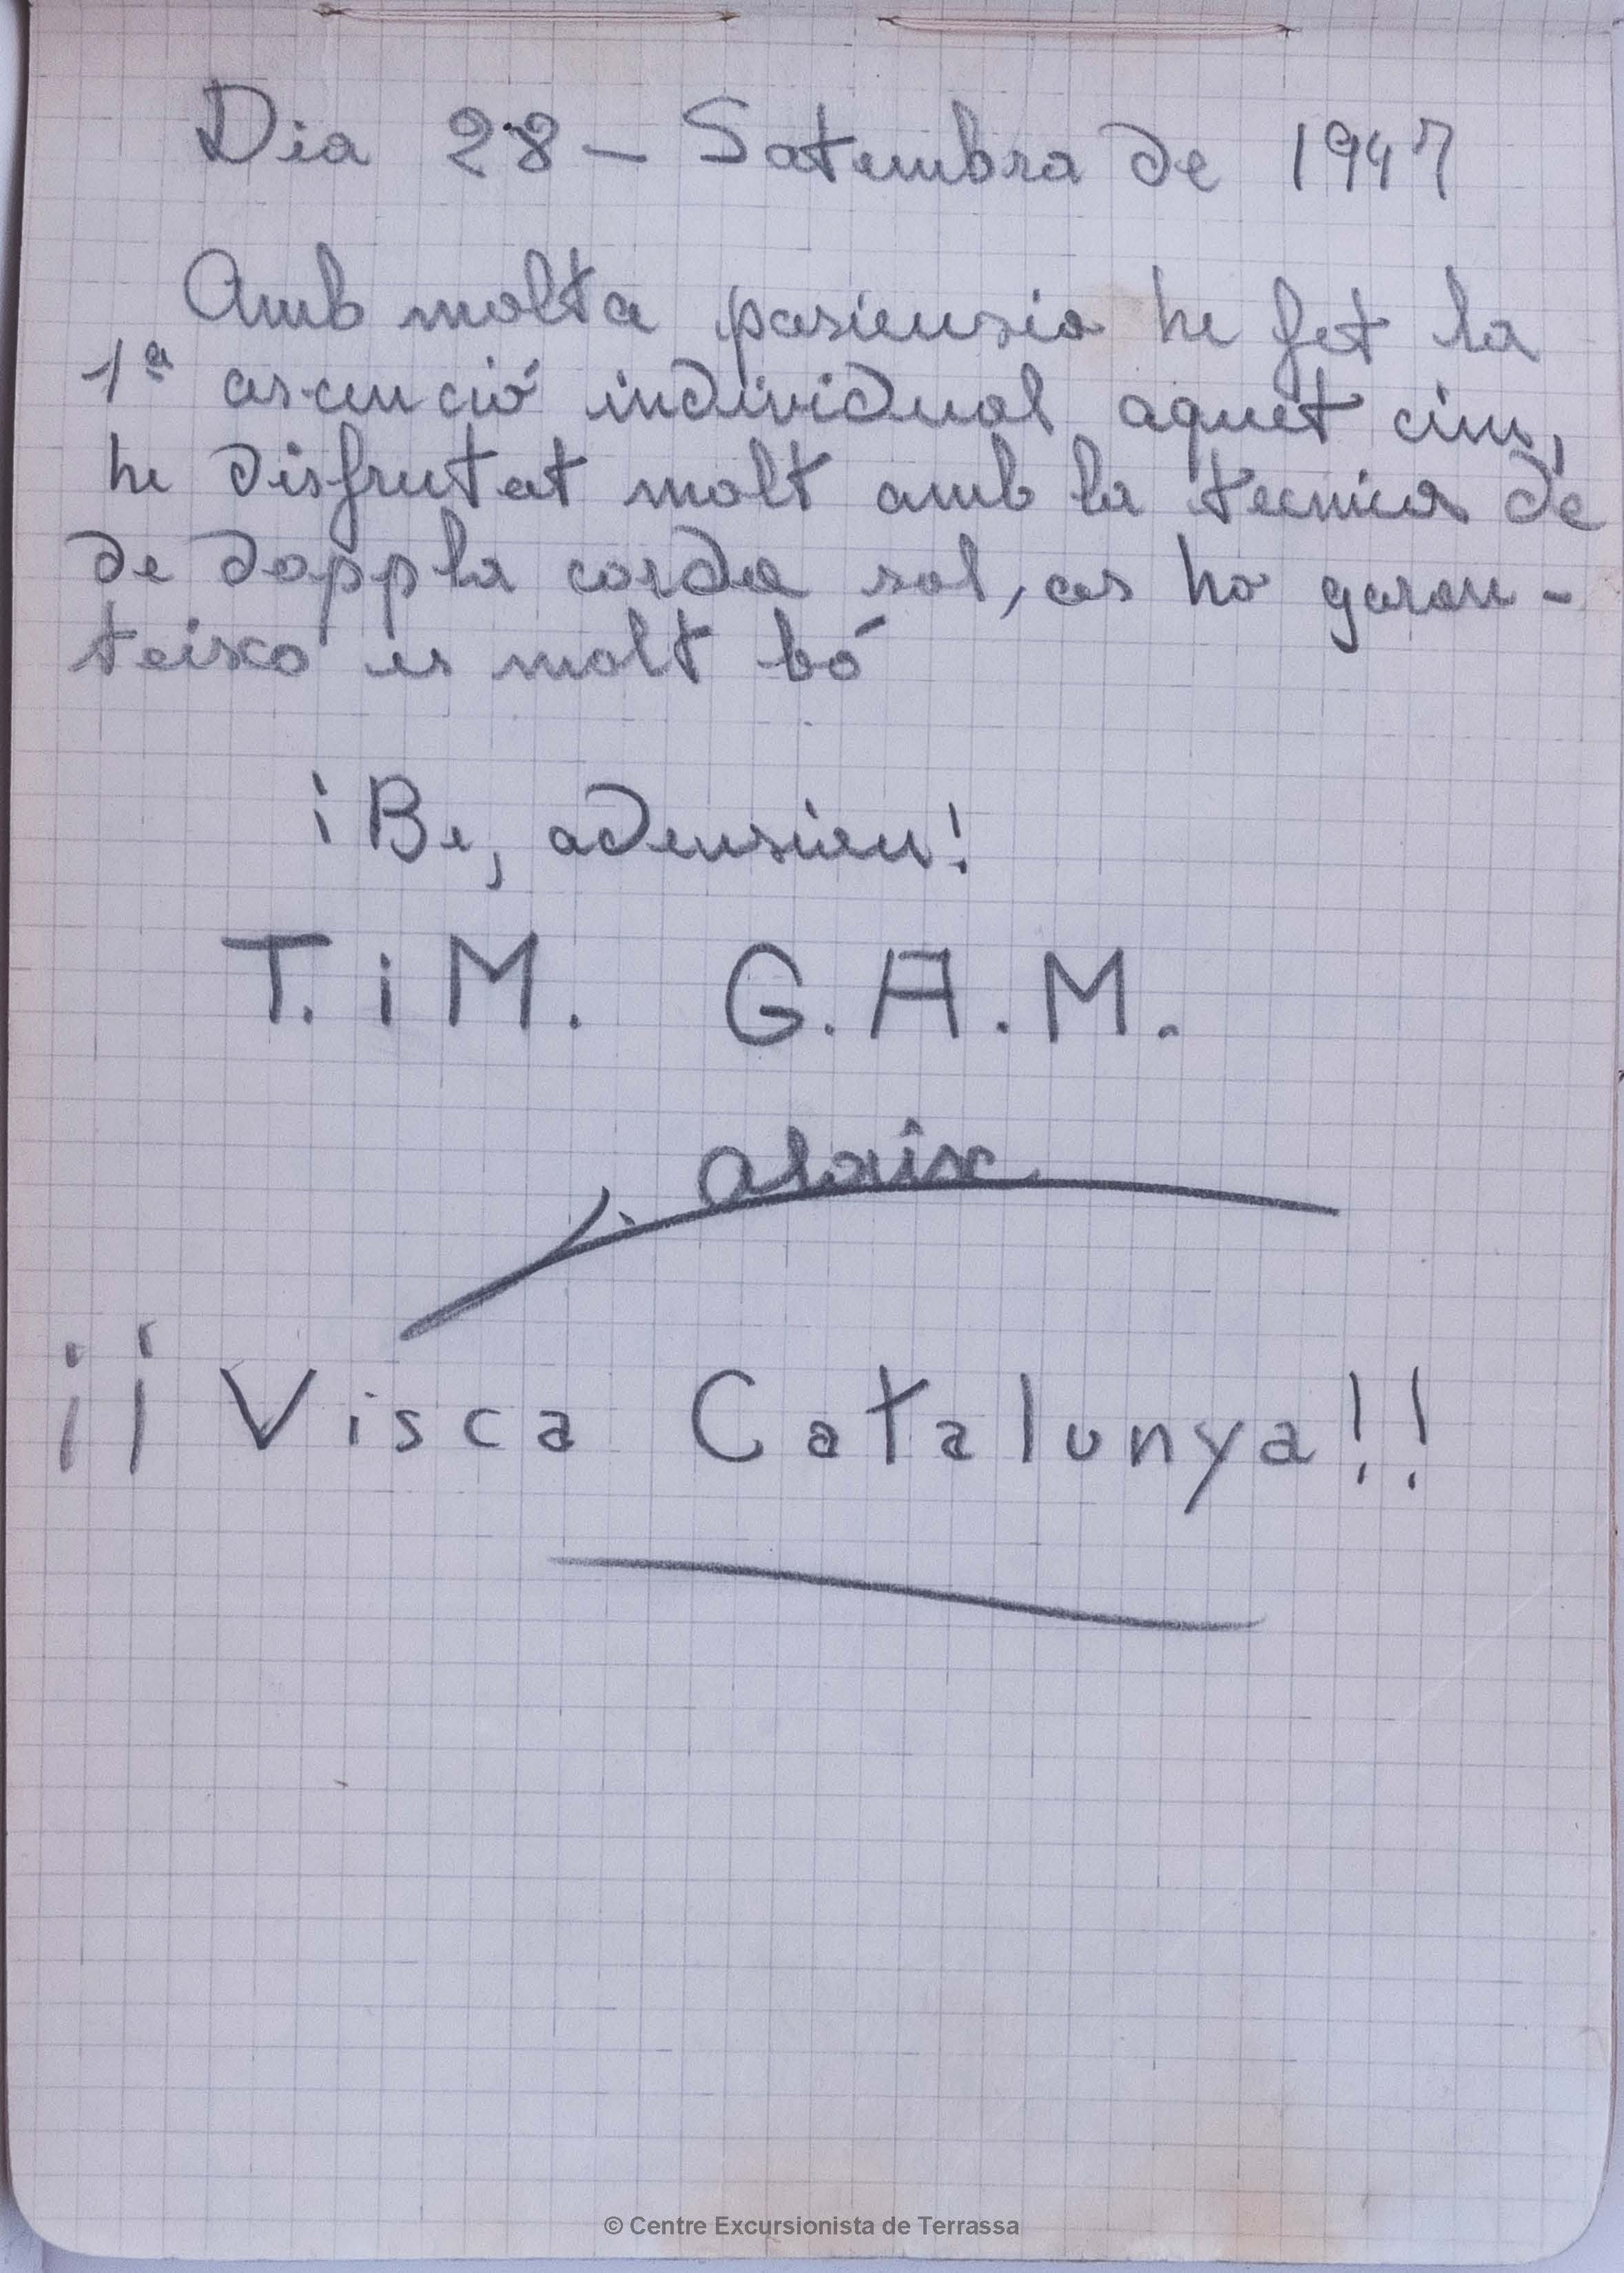 Dia 28 - Satembra de 1947
Amb molta pasiensia he fet la
1ª ascenció individual aquet cim,
he disfrutat molt amb la tecnica de
de doppla corda sol, as ho garan-
teixo es molt bó
¡Be, adeusieu!
T. i M. G.A.M.
J. Alaix
¡¡Visca Catalunya!!
© Centre Excursionista de Terrassa